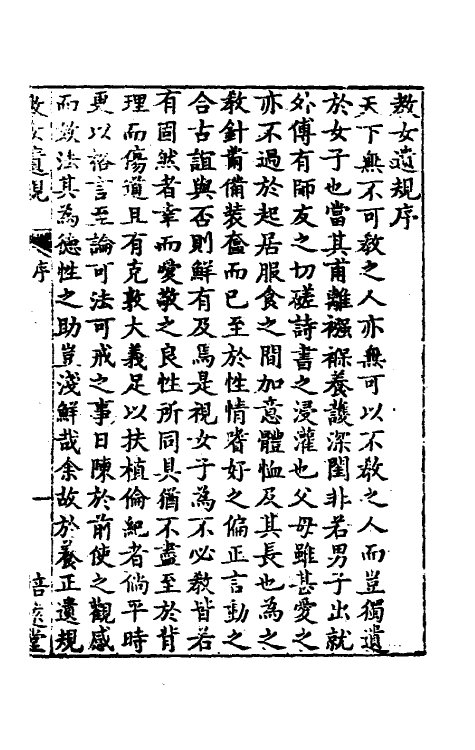 教女遺規序
天下無不可教之人亦無可以不教之人而豈獨遺
於女子也當其甫離襁褓養護深閨非若男子出就
外傅有師友之切磋詩書之浸灌也父母雖甚愛之
亦不過於起居服食之間加意體恤及其長也為之
教針黹備裝奩而已至於性情嗜好之偏正言動之
合古誼與否則鮮有及焉是視女子為不必教皆若
有固然者幸而愛敬之良性所同具猶不盡至於背
理而傷道且有克敦大義足以扶植倫紀者倘平時
更以格言至論可法可戒之事日陳於前使之觀感
而效法其為德性之助豈淺鮮哉余故於養正遺規
教女遺規
序
一
培遠堂